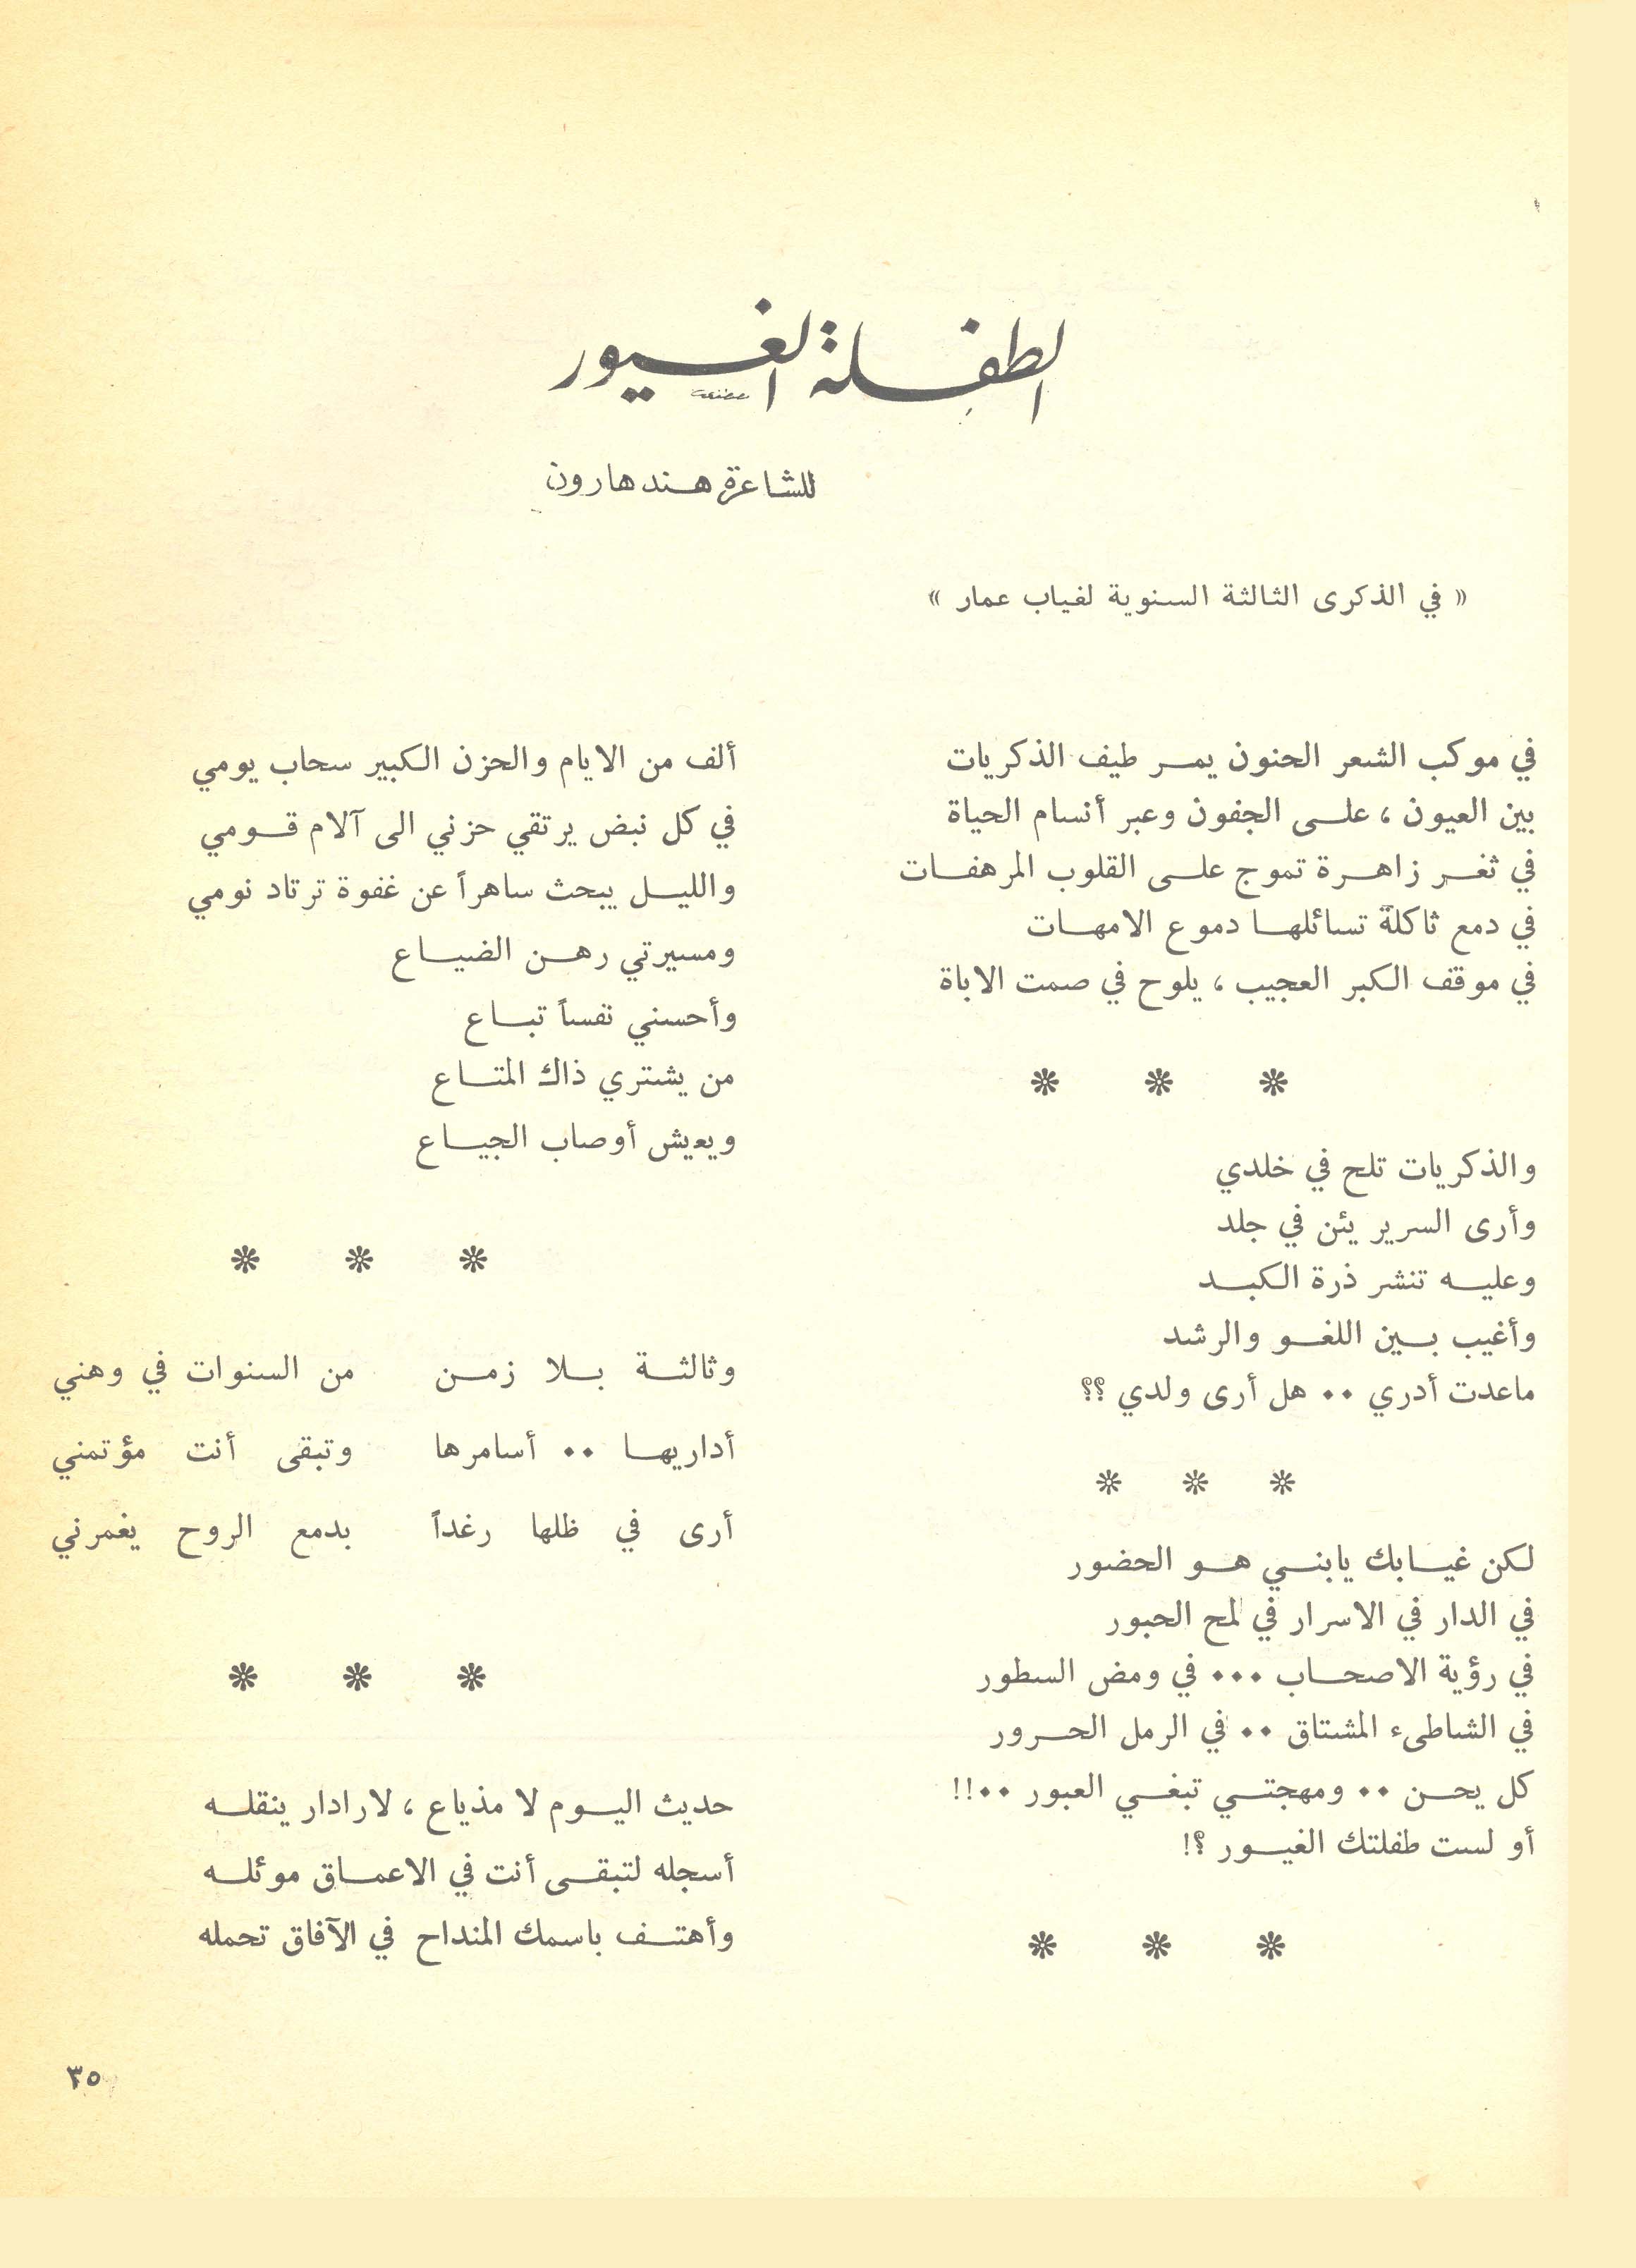 الطفلة الغيور
للشاعرة هند هارون
« في الذكرى الثالثة السنوية لغياب عمار »
في موكب الشعر الحنون يمر طيف الذكريات
بين العيون ، على الجفون وعبر أنسام الحياة
في ثغر زاهرة تموج على القلوب المرهفات
في دمع ثاكلة تسائلها دموع الامهات
في موقف الكبر العجيب ، يلوح في صمت الاباة
* * *
والذكريات تلح في خلدي
وأرى السرير يئن في جلد
وعليه تنشر ذرة الكبد
وأغيب بين اللغو والرشد
ماعدت أدري ٠٠ هل أرى ولدي ؟؟
* * *
لكن غيابك يابني هو الحضور
في الدار في الاسرار في لمح الحبور
في رؤية الاصحاب ٠٠٠ في ومض السطور
في الشاطىء المشتاق ٠٠ في الرمل الحرور
كل يحن ٠٠ ومهجتي تبغي العبور ٠٠!!
أو لست طفلتك الغيور ؟!
* * *
ألف من الايام والحزن الكبير سحاب يومي
في كل نبض يرتقي حزني الى آلام قومي
والليل يبحث ساهراً عن غفوة ترتاد نومي
ومسيرتي رهن الضياع
وأحسني نفساً تباع
من يشتري ذاك المتاع
ويعيش أوصاب الجياع
* * *
وثالثة بلا زمن من السنوات في وهني
أداريها ٠٠ أسامرها وتبقى أنت مؤتمني
أرى في ظلها رغداً بدمع الروح يغمرني
* * *
حديث اليوم لا مذياع ، لارادار ينقله
أسجله لتبقى أنت في الاعماق موئله
وأهتف باسمك المنداح في الآفاق تحمله
٣٥